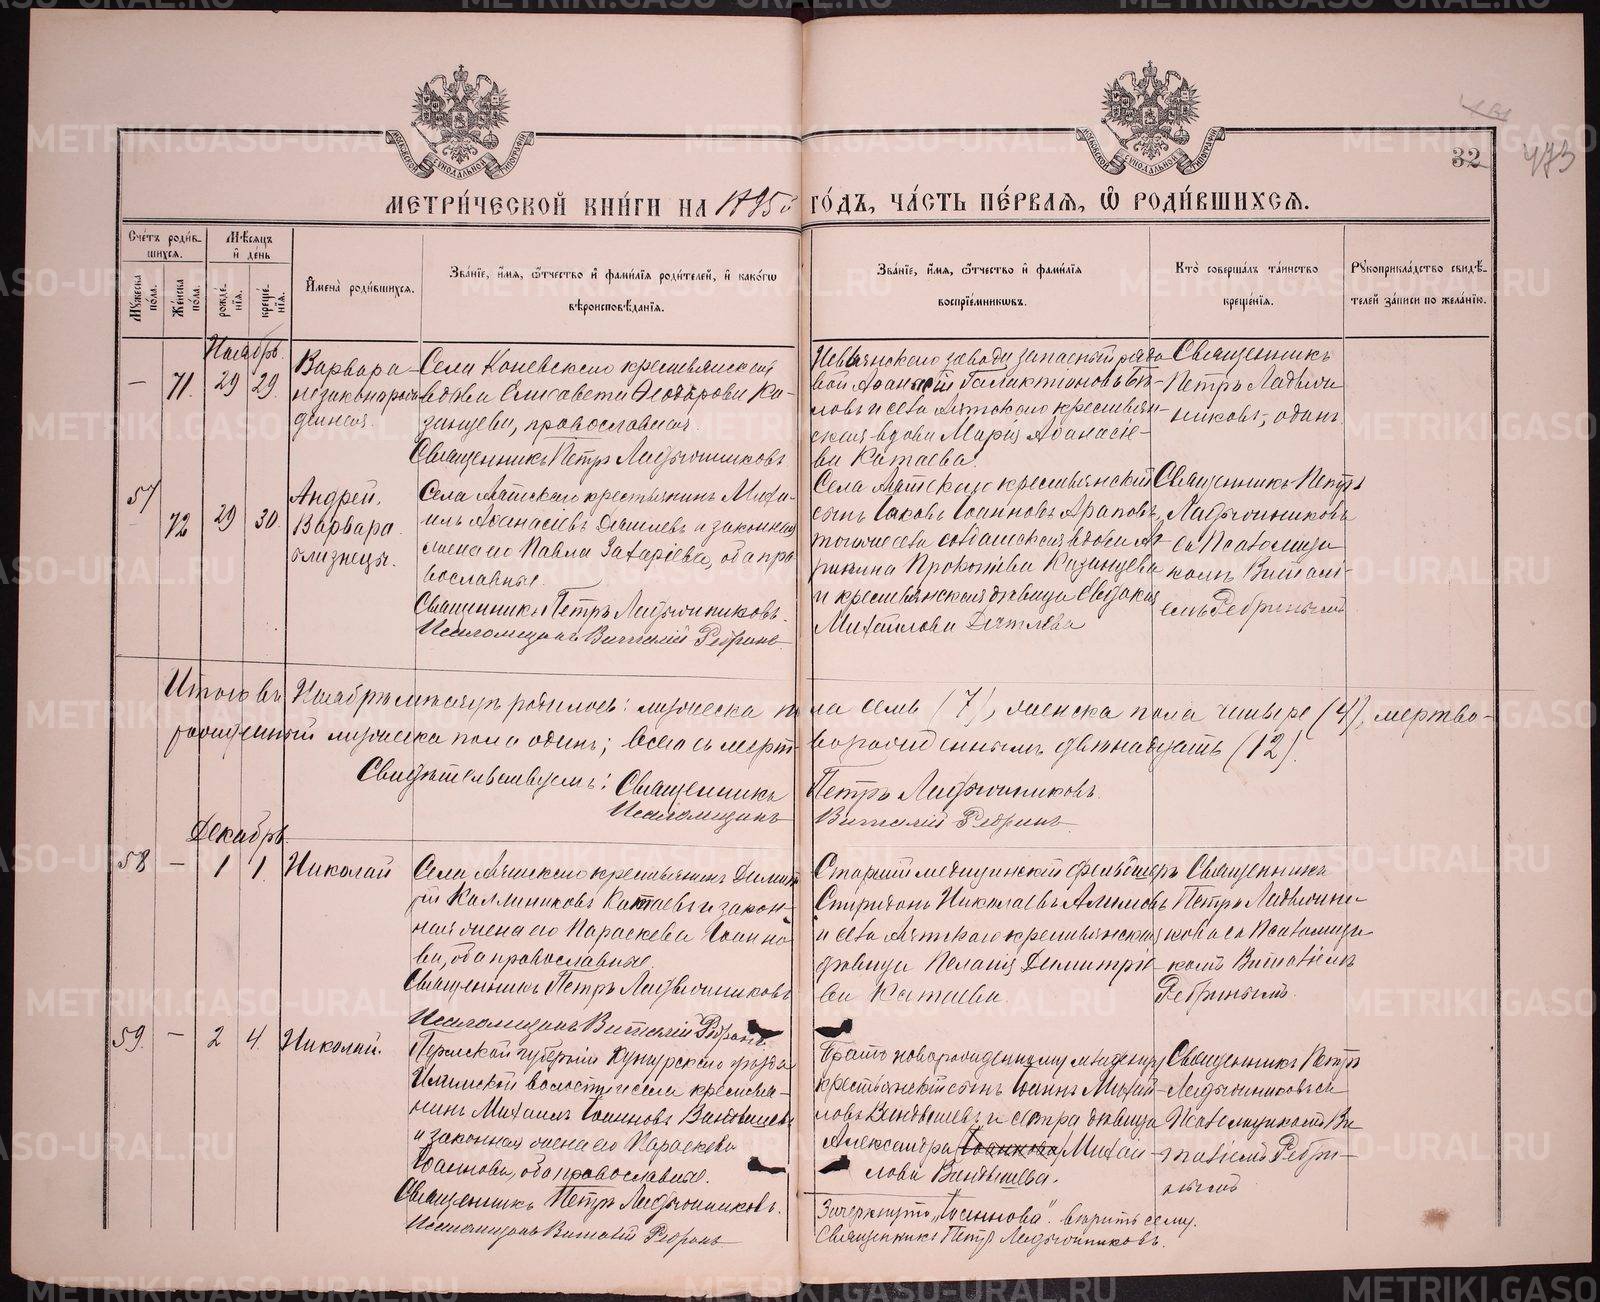 МЕТРИ́ЧЕСКОЙ КНИ́ГИ НА 1895й ГО́ДЪ, ЧА́СТЬ ПЕ́РВАЯ, Ѡ҆ РОДИ́ВШИХСЯ.
32
473
Сче́тъ роди́в-
шихся.
Мꙋ́жеска по́ла.
Же́нска по́ла.
Мѣ́сяцъ и҆ де́нь
рожде́-
нїя.
креще́-
нїя.
И҆мена̀ роди́вшихся.
Зва́нїе, и҆́мя, ѻ҆́тчество и҆ фами́лїя роди́телей, и҆ како́гѡ
вѣроисповѣ́данїя.
Зва́нїе, и҆́мя, ѻ҆́тчество и҆ фами́лїя
воспрїе́мниковъ.
Кто̀ соверша́лъ та́инство
креще́нїя.
Рꙋкоприкла́дство свидѣ́-
телей за́писи по жела́нїю.
Ноябрь.
— 71. 29 29.
Варвара
незаконорож-
денная.
Села Коневскаго крестьянская
вдова Елисавета Ѳеодорова Ка-
занцева, православная.
Священникъ Петръ Ладыжниковъ
Невьянскаго завода запасный рядо
вой Аѳанасій Галактіоновъ Бы-
ловъ и села Аятскаго крестьян-
ская вдова Марія Аѳанасіе-
ва Катаева.
Священникъ
Петръ Ладыжни-
никовъ, одинъ.
57
72 29 30.
Андрей.
Варвара.
близнецы.
Села Аятскаго крестьянинъ Миха-
илъ Аѳанасіевъ Дятлевъ и законная
жена его Павла Захаріева, оба пра
вославные.
Священникъ Петръ Ладыжниковъ.
Псаломщикъ Виталій Ребринъ
Села Аятскаго крестьянскій
сынъ Іаковъ Іоанновъ Араповъ,
крестьянская вдова
Прокопіева Казанцева
и крестьянская дѣвица Евдокія
Михайлова Дятлева
Священникъ Петръ
Ладыжниковъ
съ Псаломщи
комъ Витал-
емъ Ребринымъ
Итого въ Ноябрѣ мѣсяцѣ родилось: мужеска пола семь (7), женска пола четыре (4), мертво-
рожденный мужеска пола одинъ; всего съ мертворожденнымъ двѣнадцать (12).
Свидѣтельствуемъ: Священникъ Петръ Ладыжниковъ.
Псаломщикъ Виталій Ребринъ
Декабрь.
58 — 1 1.
Николай
Села Аятскаго крестьянинъ Димит
рій Каллиниковъ Катаевъ и закон-
ная жена его Параскева Іоанно
ва, оба православные.
Священникъ Петръ Ладыжниковъ
Псаломщикъ Виталій Ребринъ
Старшій медицинскій фельдшеръ
Спиридонъ Николаевъ Алимовъ
и села Аятскаго крестьянская
дѣвица Пелагія Димитріе-
ва Катаева
Священникъ
Петръ Ладыжни-
ковъ съ Псаломщи-
комъ Виталіемъ
Ребринымъ.
59. — 2 4.
Николай.
Пермской губерніи Кунгурскаго уѣзда
Илимской волости и села крестья-
нинъ Михаилъ Іоанновъ Вандышевъ
и законная жена его Параскева
Іоаннова, оба православные.
Священникъ Петръ Ладыжниковъ.
Псаломщикъ Виталій Ребринъ
Братъ новорожденному младенцу
крестьянскій сынъ Іоаннъ Михай-
ловъ Вандышевъ и сестра дѣвица
Александра (Іоаннова) Михай-
лова Вандышева.
Священникъ Петръ
Ладыжниковъ съ
Псаломщикомъ Ви-
таліемъ Ребри-
нымъ
Зачеркнуто „Іоаннова“. вѣрить сему.
Священникъ Петръ Ладыжниковъ.
METRIKI.GASO-URAL.RU